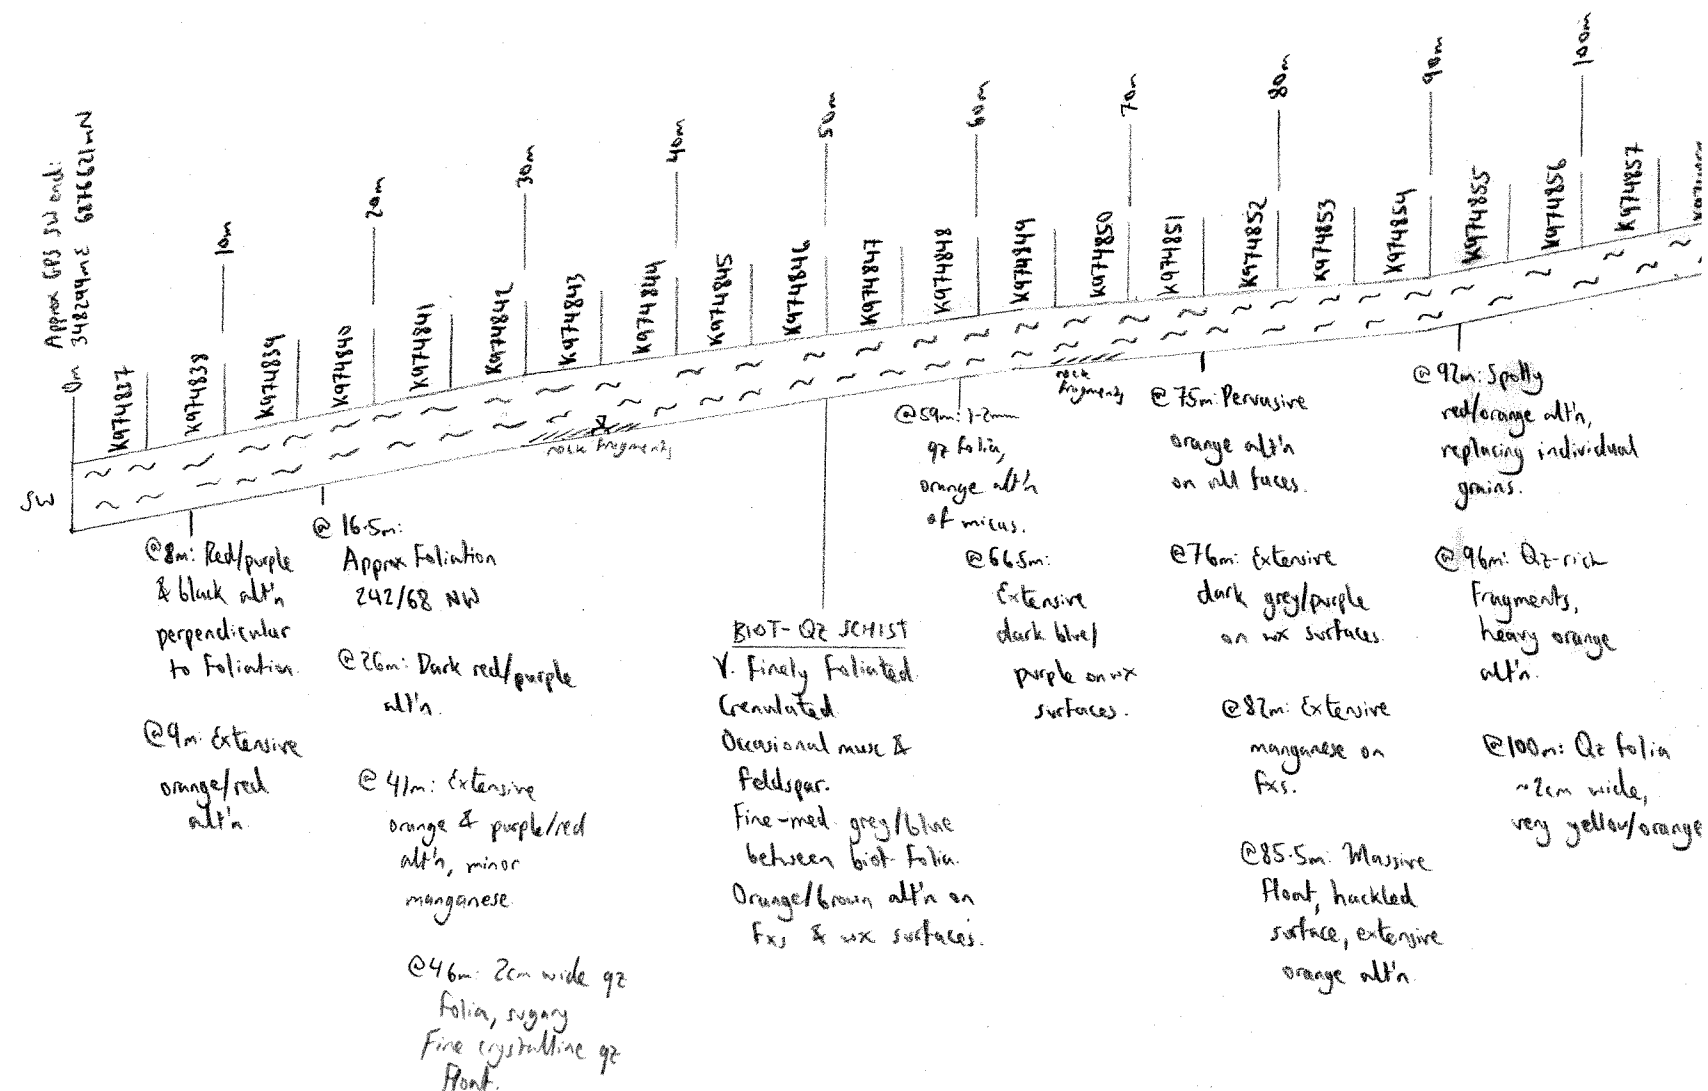 Approx GPS SW end:
348244mE 6876621mN
0m
10m
20m
30m
40m
50m
60m
70m
80m
90m
100m
K974837
K974838
K974839
K974840
K974841
K974842
K974843
K974844
K974845
K974846
K974847
K974848
K974849
K974850
K974851
K974852
K974853
K974854
K974855
K974856
K974857
SW
rock fragments
rock
fragments
@8m: Red/purple
& black alt'n
perpendicular
to foliation.
@9m: Extensive
orange/red
alt'n.
@ 16.5m:
Approx Foliation
242/68 NW
@26m: Dark red/purple
alt'n.
@ 41m: Extensive
orange & purple/red
alt'n, minor
manganese
@46m: 2cm wide qz
folia, sugary
Fine crystalline qz
float.
BIOT-QZ SCHIST
V. Finely Foliated.
Crenulated.
Occasional musc &
feldspar.
Fine-med grey/blue
between biot folia.
Orange/brown alt'n on
fxs & wx surfaces.
@59m: 1-2mm
qz folia,
orange alt'n
of micas.
@66.5m:
Extensive
dark blue/
purple on wx
surfaces.
@ 75m: Pervasive
orange alt'n
on all faces.
@76m: Extensive
dark grey/purple
on wx surfaces.
@82m: Extensive
manganese on
fxs.
@85.5m: Massive
float, hackled
surface, extensive
orange alt'n.
@ 92m: Spotty
red/orange alt'n,
replacing individual
grains.
@96m: Qz-rich
fragments,
heavy orange
alt'n.
@100m: Qz folia
~2cm wide,
very yellow/orange